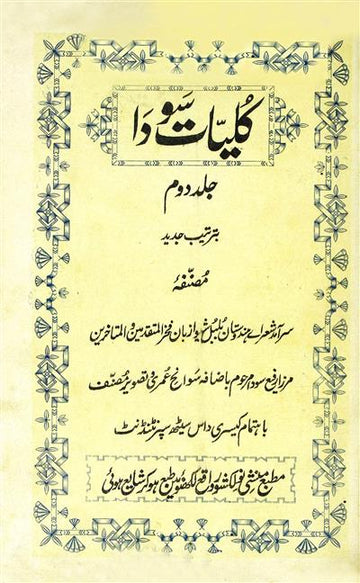 کلیات سودا
جلد دوم
بترتیب جدید
مصنفہٗ
سرآمد شعراے ہندوستان بلبل شیوا زبان فخر المتقدمین والمتاخرین
مرزا رفیع سودا مرحوم باضافہ سوانح عمری و تصویر مصنف
باہتمام کیسری داس سیٹھ سپرنٹنڈنٹ
مطبع منشی نولکشور واقع لکھنؤ میں طبع ہوکر شایع ہوئی